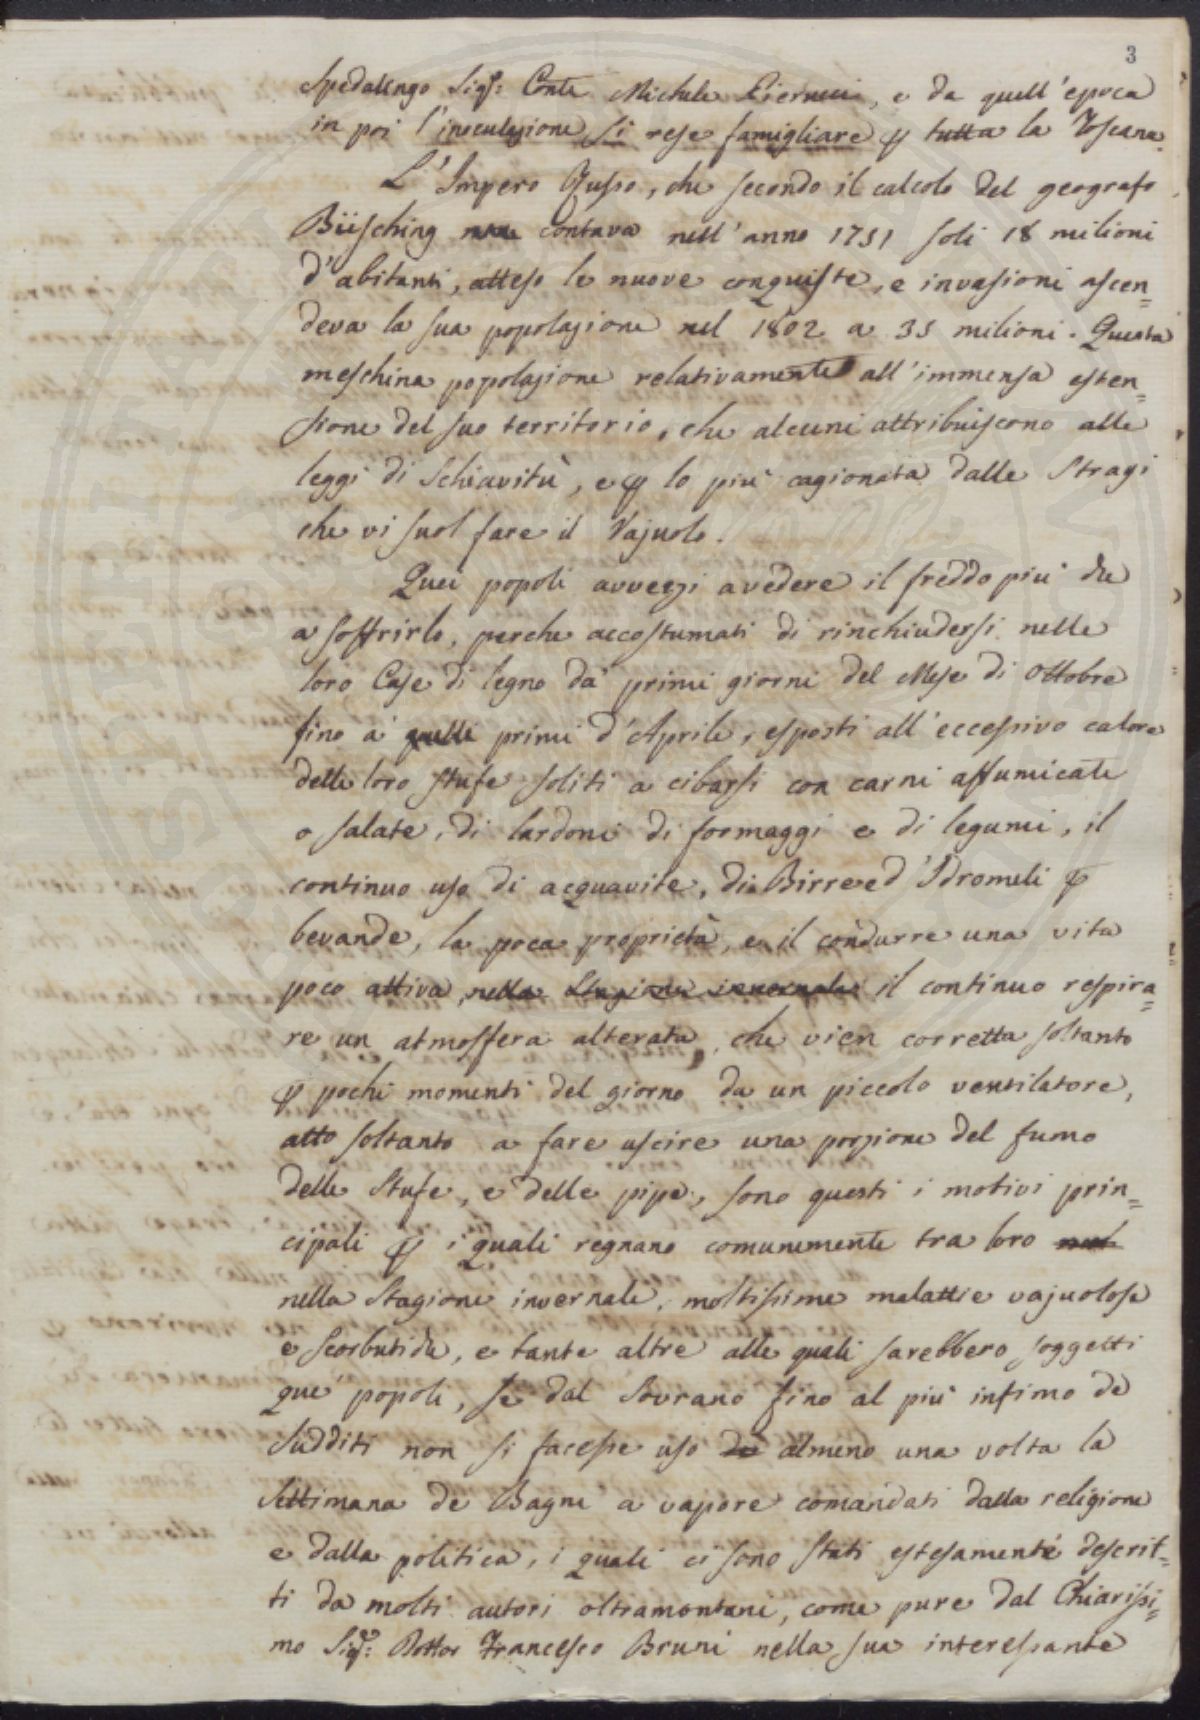 3
Spedalingo Sigr: Conte Michele Pierucci, e da quell'epoca
in poi l'inoculazione si rese famigliare p tutta la Toscana.
L'Impero Russo, che secondo il calcolo del geografo
Büsching contava nell'anno 1751 soli 18 milioni
d'abitanti, atteso le nuove conquiste, e invasioni ascen=
deva la sua popolazione nel 1802 a 35 milioni. Questa
meschina popolazione relativamente all'immensa esten=
sione del suo territorio, che alcuni attribuiscono alle
leggi di Schiavitù, e p lo più cagionata dalle Stragi
che vi suol fare il Vajuolo.
Quei popoli avvezzi a vedere il freddo più che
a soffrirlo, perche accostumati di rinchiudersi nelle
loro Case di legno da' primi giorni del Mese di Ottobre
fino a' quelli primi d'Aprile, esposti all'eccessivo calore
delle loro stufe soliti a cibarsi con carni affumicate
o salate, di lardoni di formaggi e di legumi, il
continuo uso di acquavite, di Birre ed' Idromeli p
bevande, la poca proprietà, e il condurre una vita
poco attiva, nella Stagione invernale il continuo respira=
re un atmosfera alterata, che vien corretta soltanto
p pochi momenti del giorno da un piccolo ventilatore,
atto soltanto a fare uscire una porzione del fumo
delle Stufe, e delle pipe, sono questi i motivi prin=
cipali p i quali regnano comunemente tra loro nel
nella Stagione invernale, moltissime malattie vajuolose
e Scorbutiche, e tante altre alle quali sarebbero soggetti
que' popoli, se dal Sovrano fino al più infimo de'
Sudditi non si facesse uso di almeno una volta la
Settimana de' Bagni a vapore comandati dalla religione
e dalla politica, i quali ci sono stati estesamente descrit=
ti da molti autori oltramontani, come pure dal Chiarissi=
mo Sigr: Dottor Francesco Bruni nella sua interessante